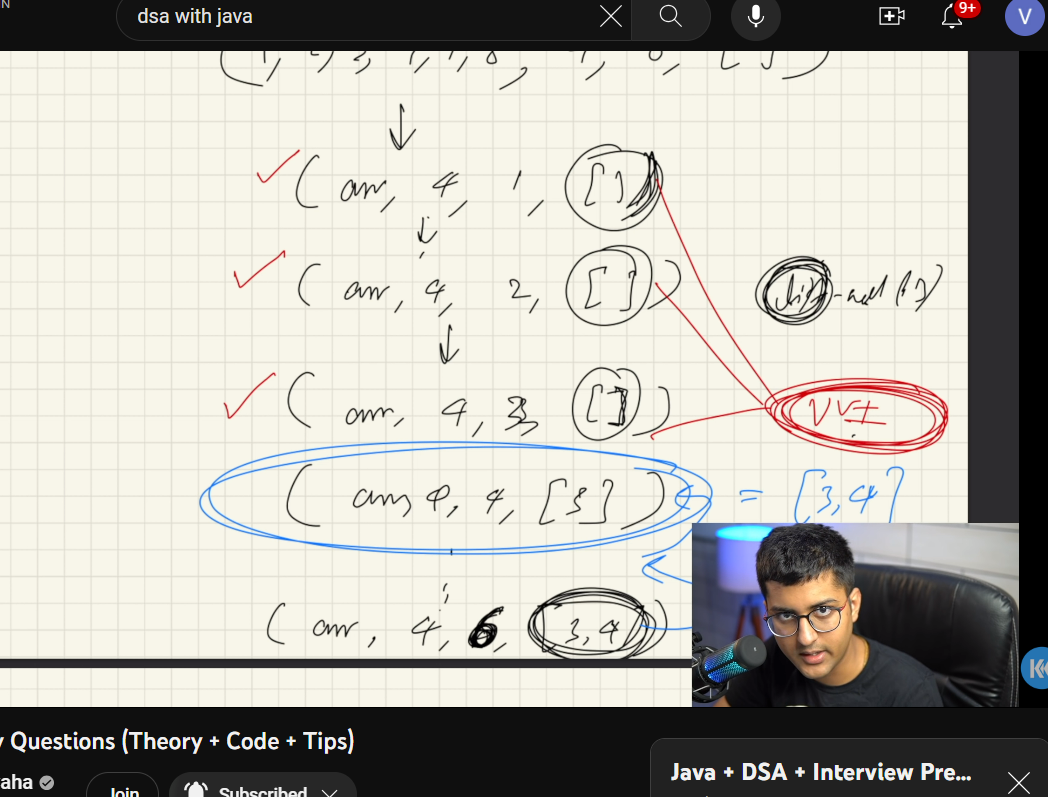 N
dsa with java
9+
V
( arr, 4, 1, [ ] )
( arr, 4, 2, [ ] )
list.add( )
( arr, 4, 3, [ ] )
( arr, 4, 4, [3] ) = [3,4]
( arr, 4, 3,4 )
y Questions (Theory + Code + Tips)
aha
Join
Subscribed
Java + DSA + Interview Pre...